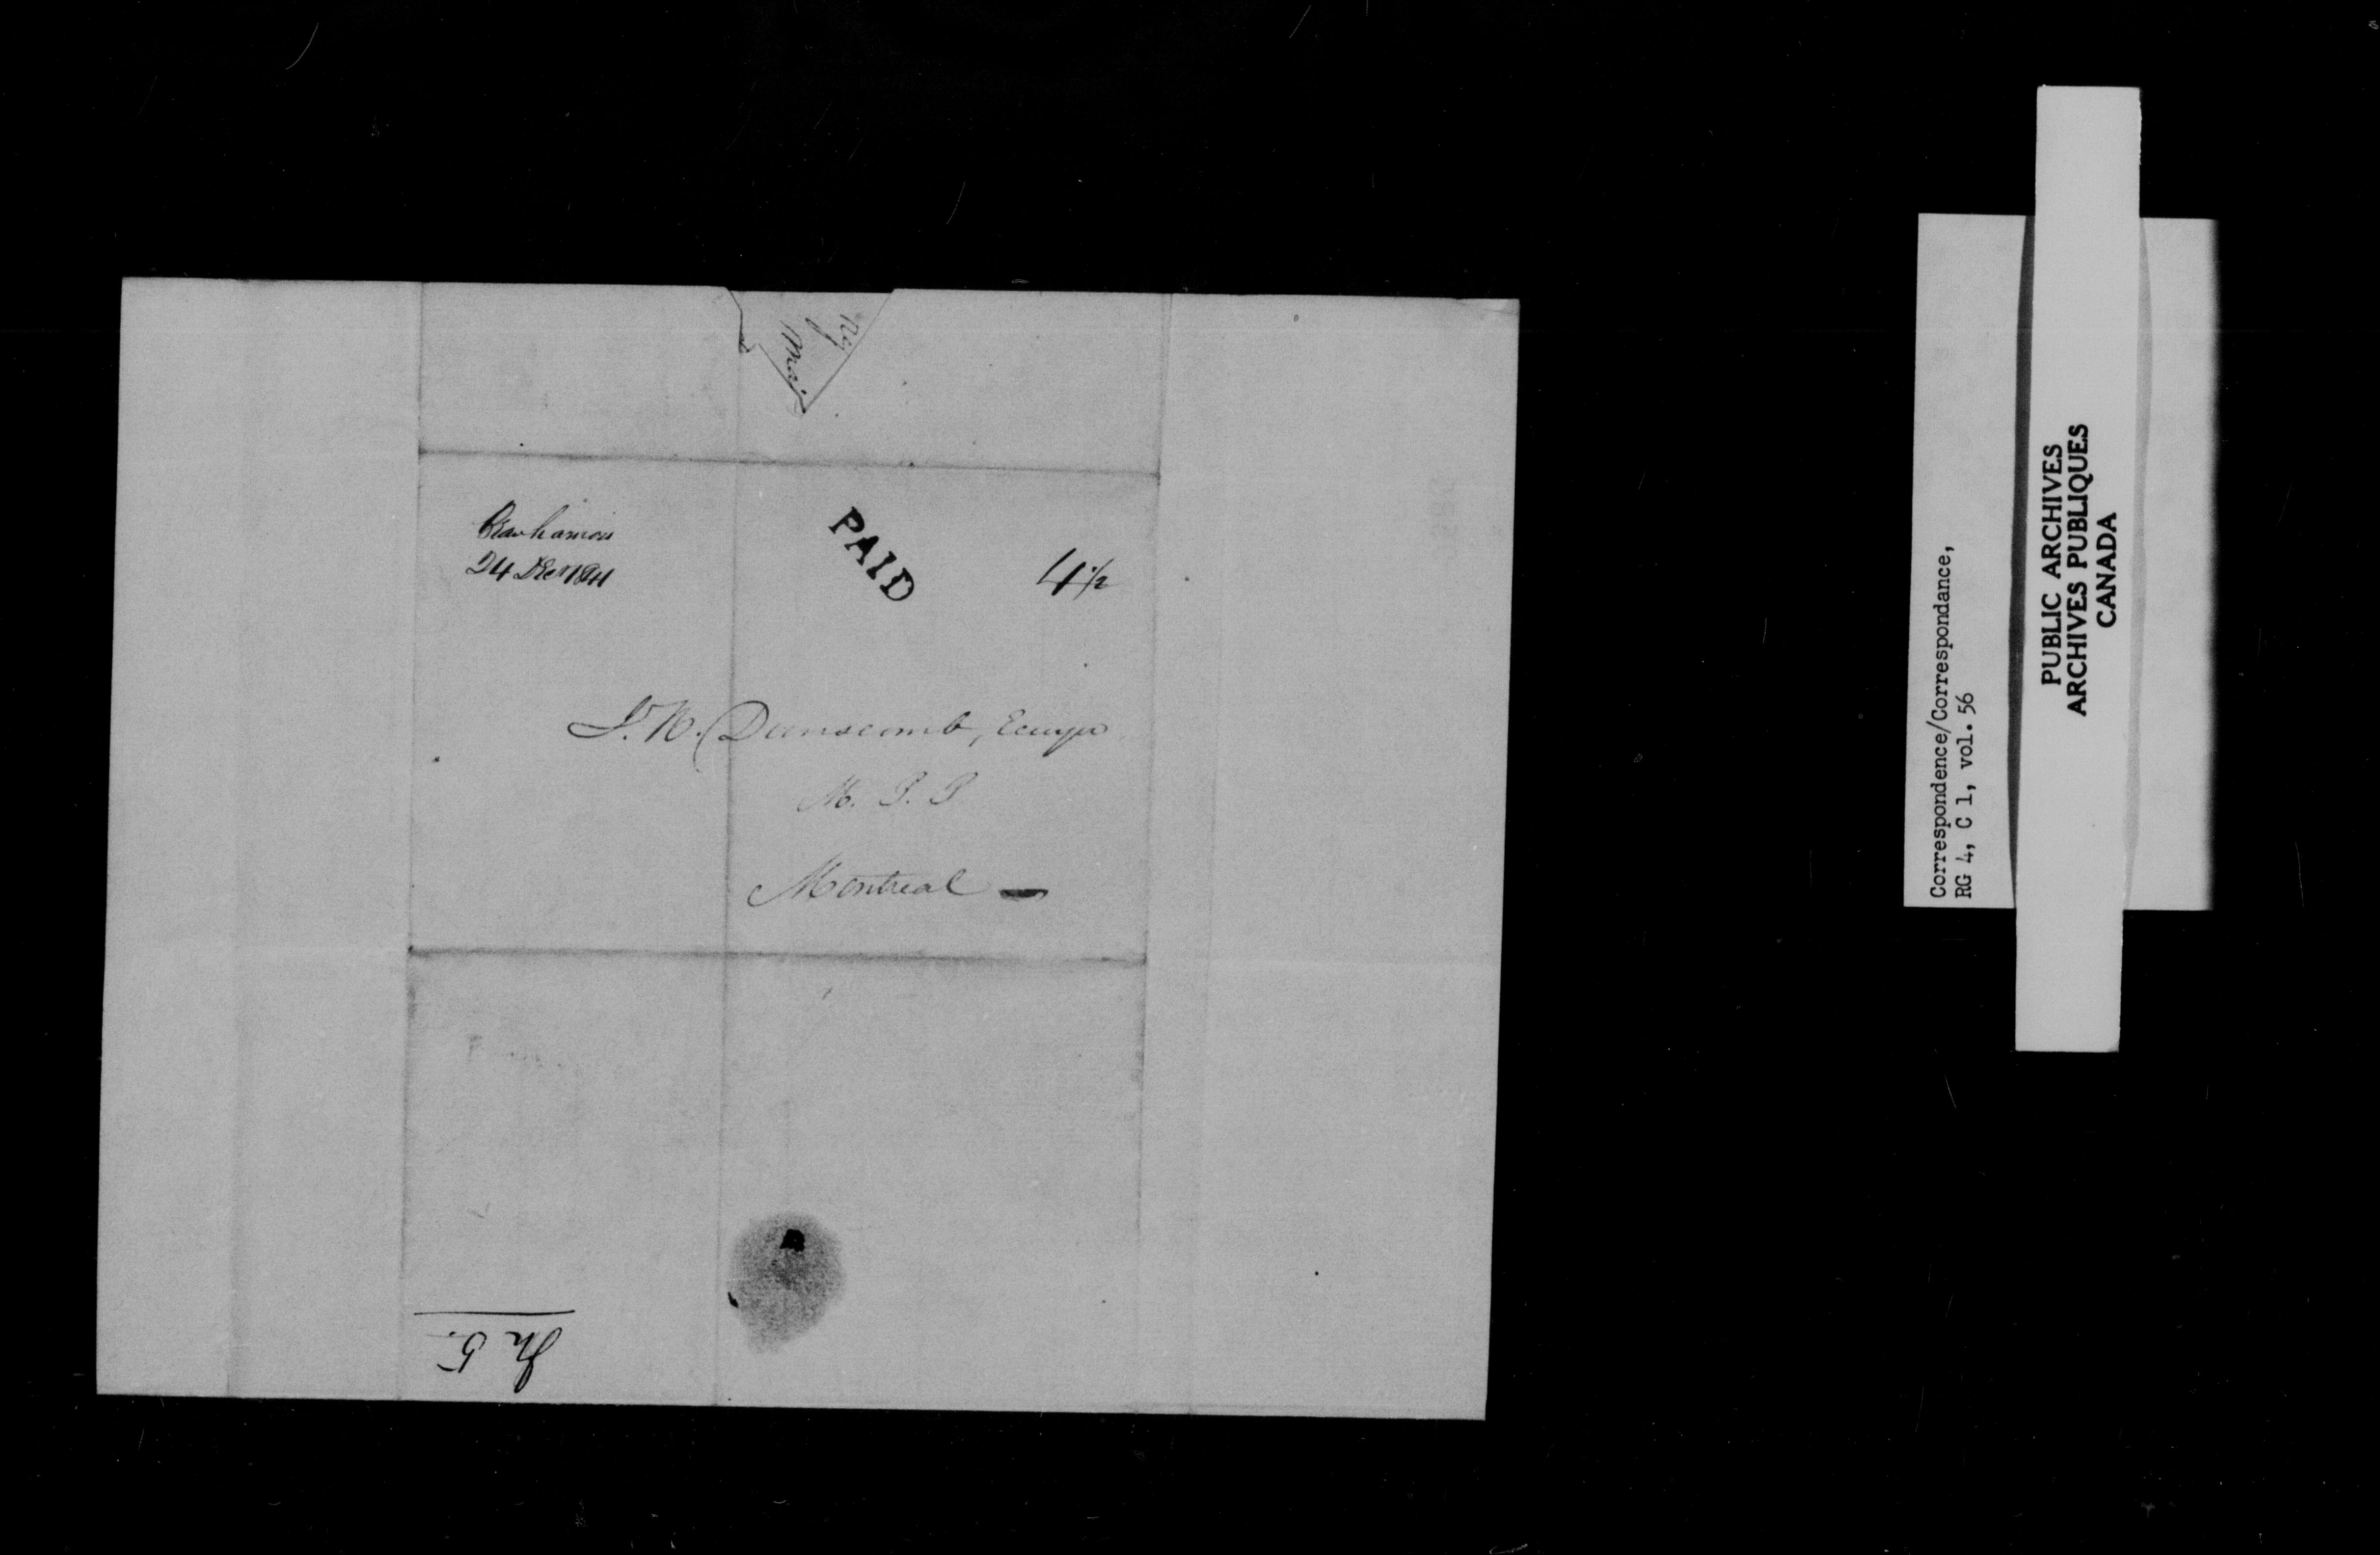 Beauharnois
24 Decr 1841
PAID
4 1/2
J. W. Dunscomb, Ecuyer
M. P. P
Montreal
Correspondence/Correspondance,
RG 4, C 1, vol. 56
PUBLIC ARCHIVES
ARCHIVES PUBLIQUES
CANADA